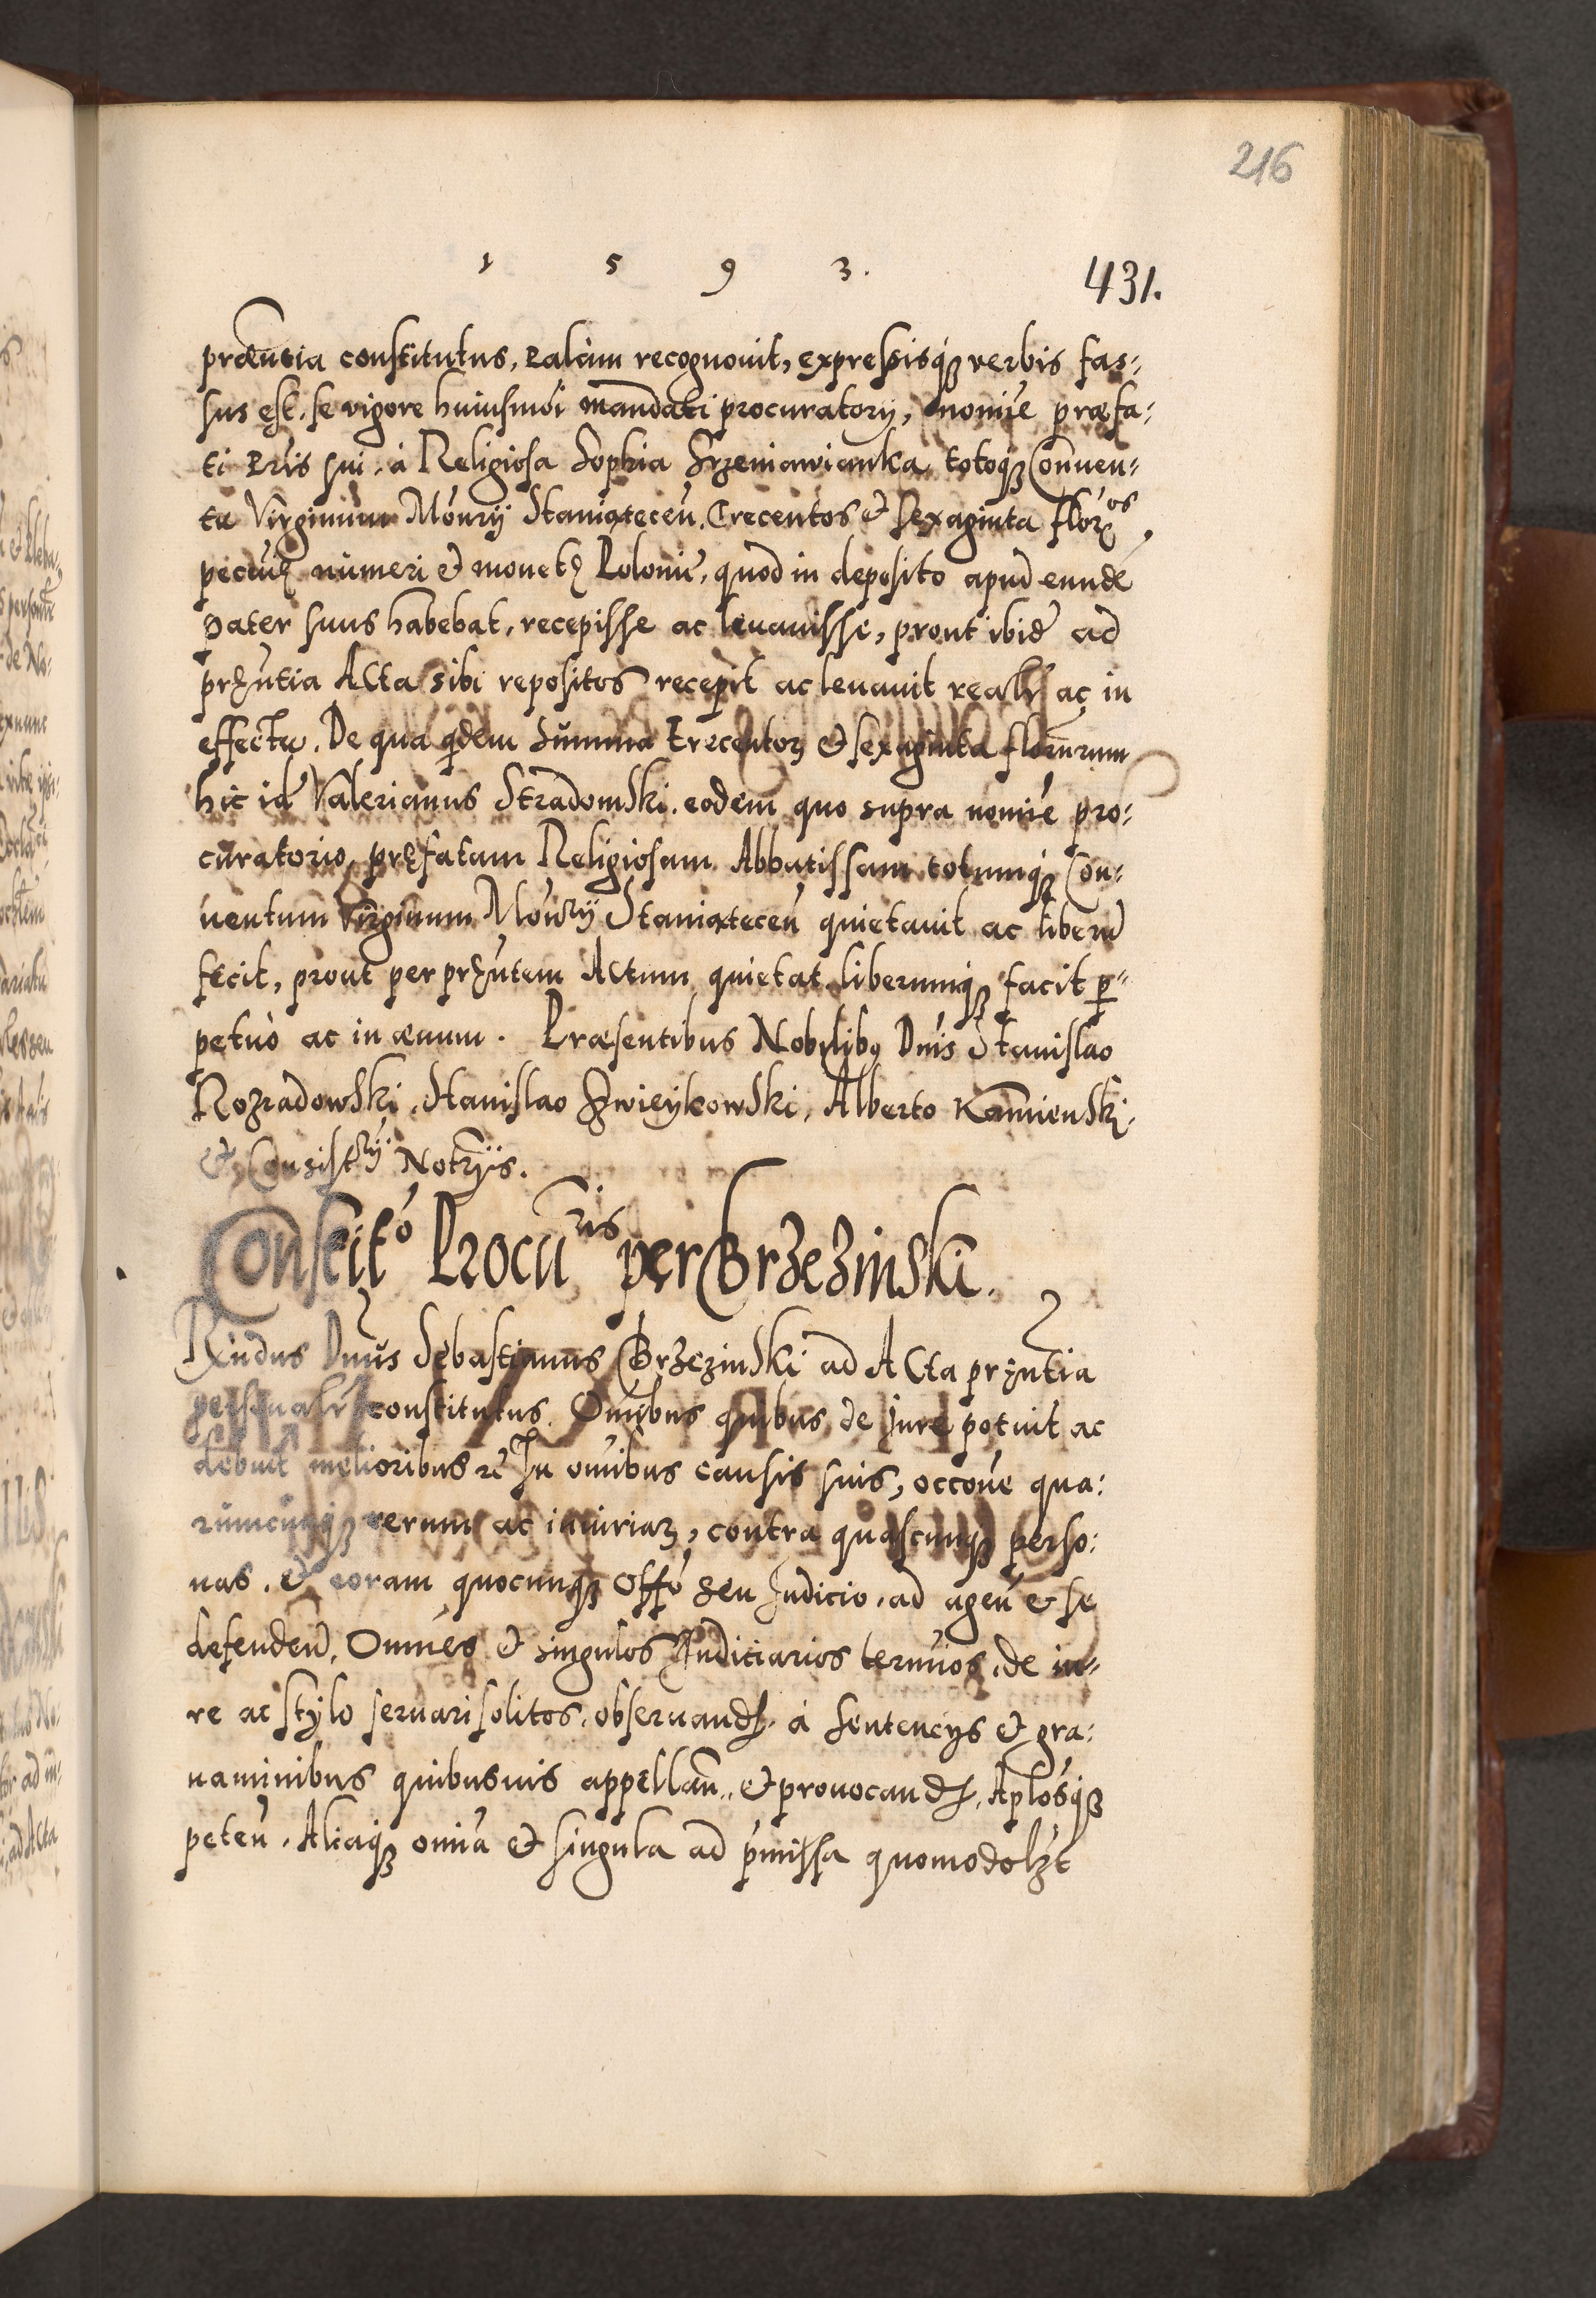 216
1 5 9 3.
431.
præntia constitutus, palam recognouit, expressisq3 verbis fas-
sus est, se vigore huiusmoi mandati procuratorij, nomine præfa-
ti Pris sui, à Religiosa Sophia Srzeniawianka, totoq3 Conuen-
tu Virginum Monrij Staniątecen, Trecentos & sexaginta florenos,
pecuniæ numeri & monetę Poloniæ, quod in deposito apud eunde
pater suus habebat, recepisse ac leuauisse, prout ibide ad
pręntia Acta sibi repositos recepit ac leuauit realr ac in
effectu. De qua qidem Summa Trecentorum & sexaginta florenorum
hic ide Valerianus Stradomski, eodem quo supra nomine pro-
curatorio, pręfatam Religiosam Abbatissam totumq3 Con-
uentum Virginum Monrij Staniątecen quietauit ac liberu
fecit, prout per pręntem Actum quietat liberumq3 facit per-
petuò ac in æuum. Præsentibus Nobilibus Dnis Stanislao
Rozradowski, Stanislao Zwieykowski, Alberto Kamienski,
& Consistrij Notrijs.
Constito Procuris per Brzezinski.
Rndus Dnus Sebastianus Brzezinski ad Acta pręntia
personalr constitutus. Omnibus quibus de jure potuit ac
debuit melioribus etc In omnibus causis suis, occone qua-
rumcunq3 rerum ac iniuriarum, contra quascunq3 perso-
nas, & coram quocunq3 Offo seu Judicio, ad agen & se
defenden, Omnes & singulos Judiciarios terminos, de iu-
re ac stylo seruari solitos, obseruand, à sentencijs & gra-
uaminibus quibusuis appellan, & prouocand, Aplosq3
peten, Aliaq3 omnia & singula ad pmissa quomodolzt